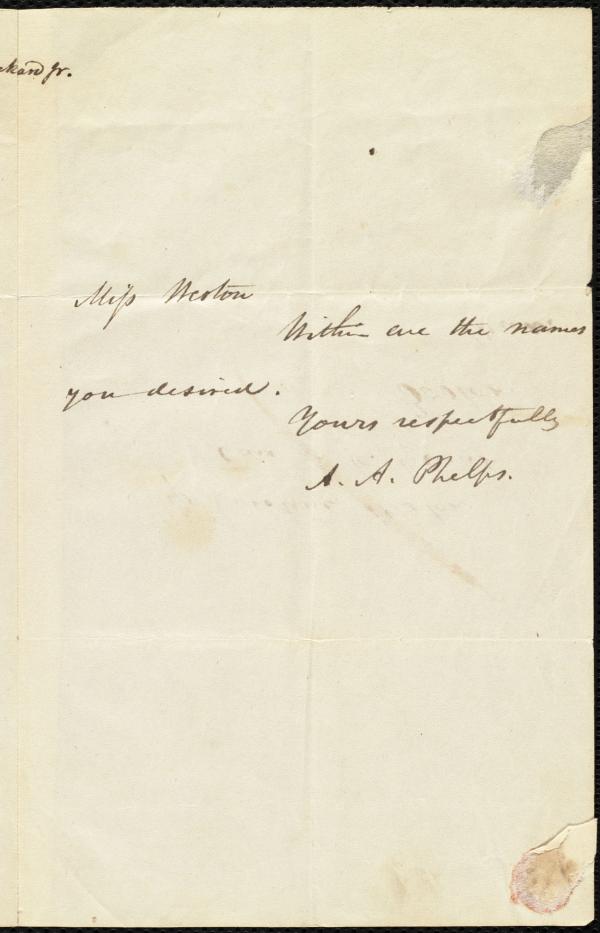 Jr.
Miss Weston
Within are the names
you desired.
Yours respectfully
A. A. Phelps.